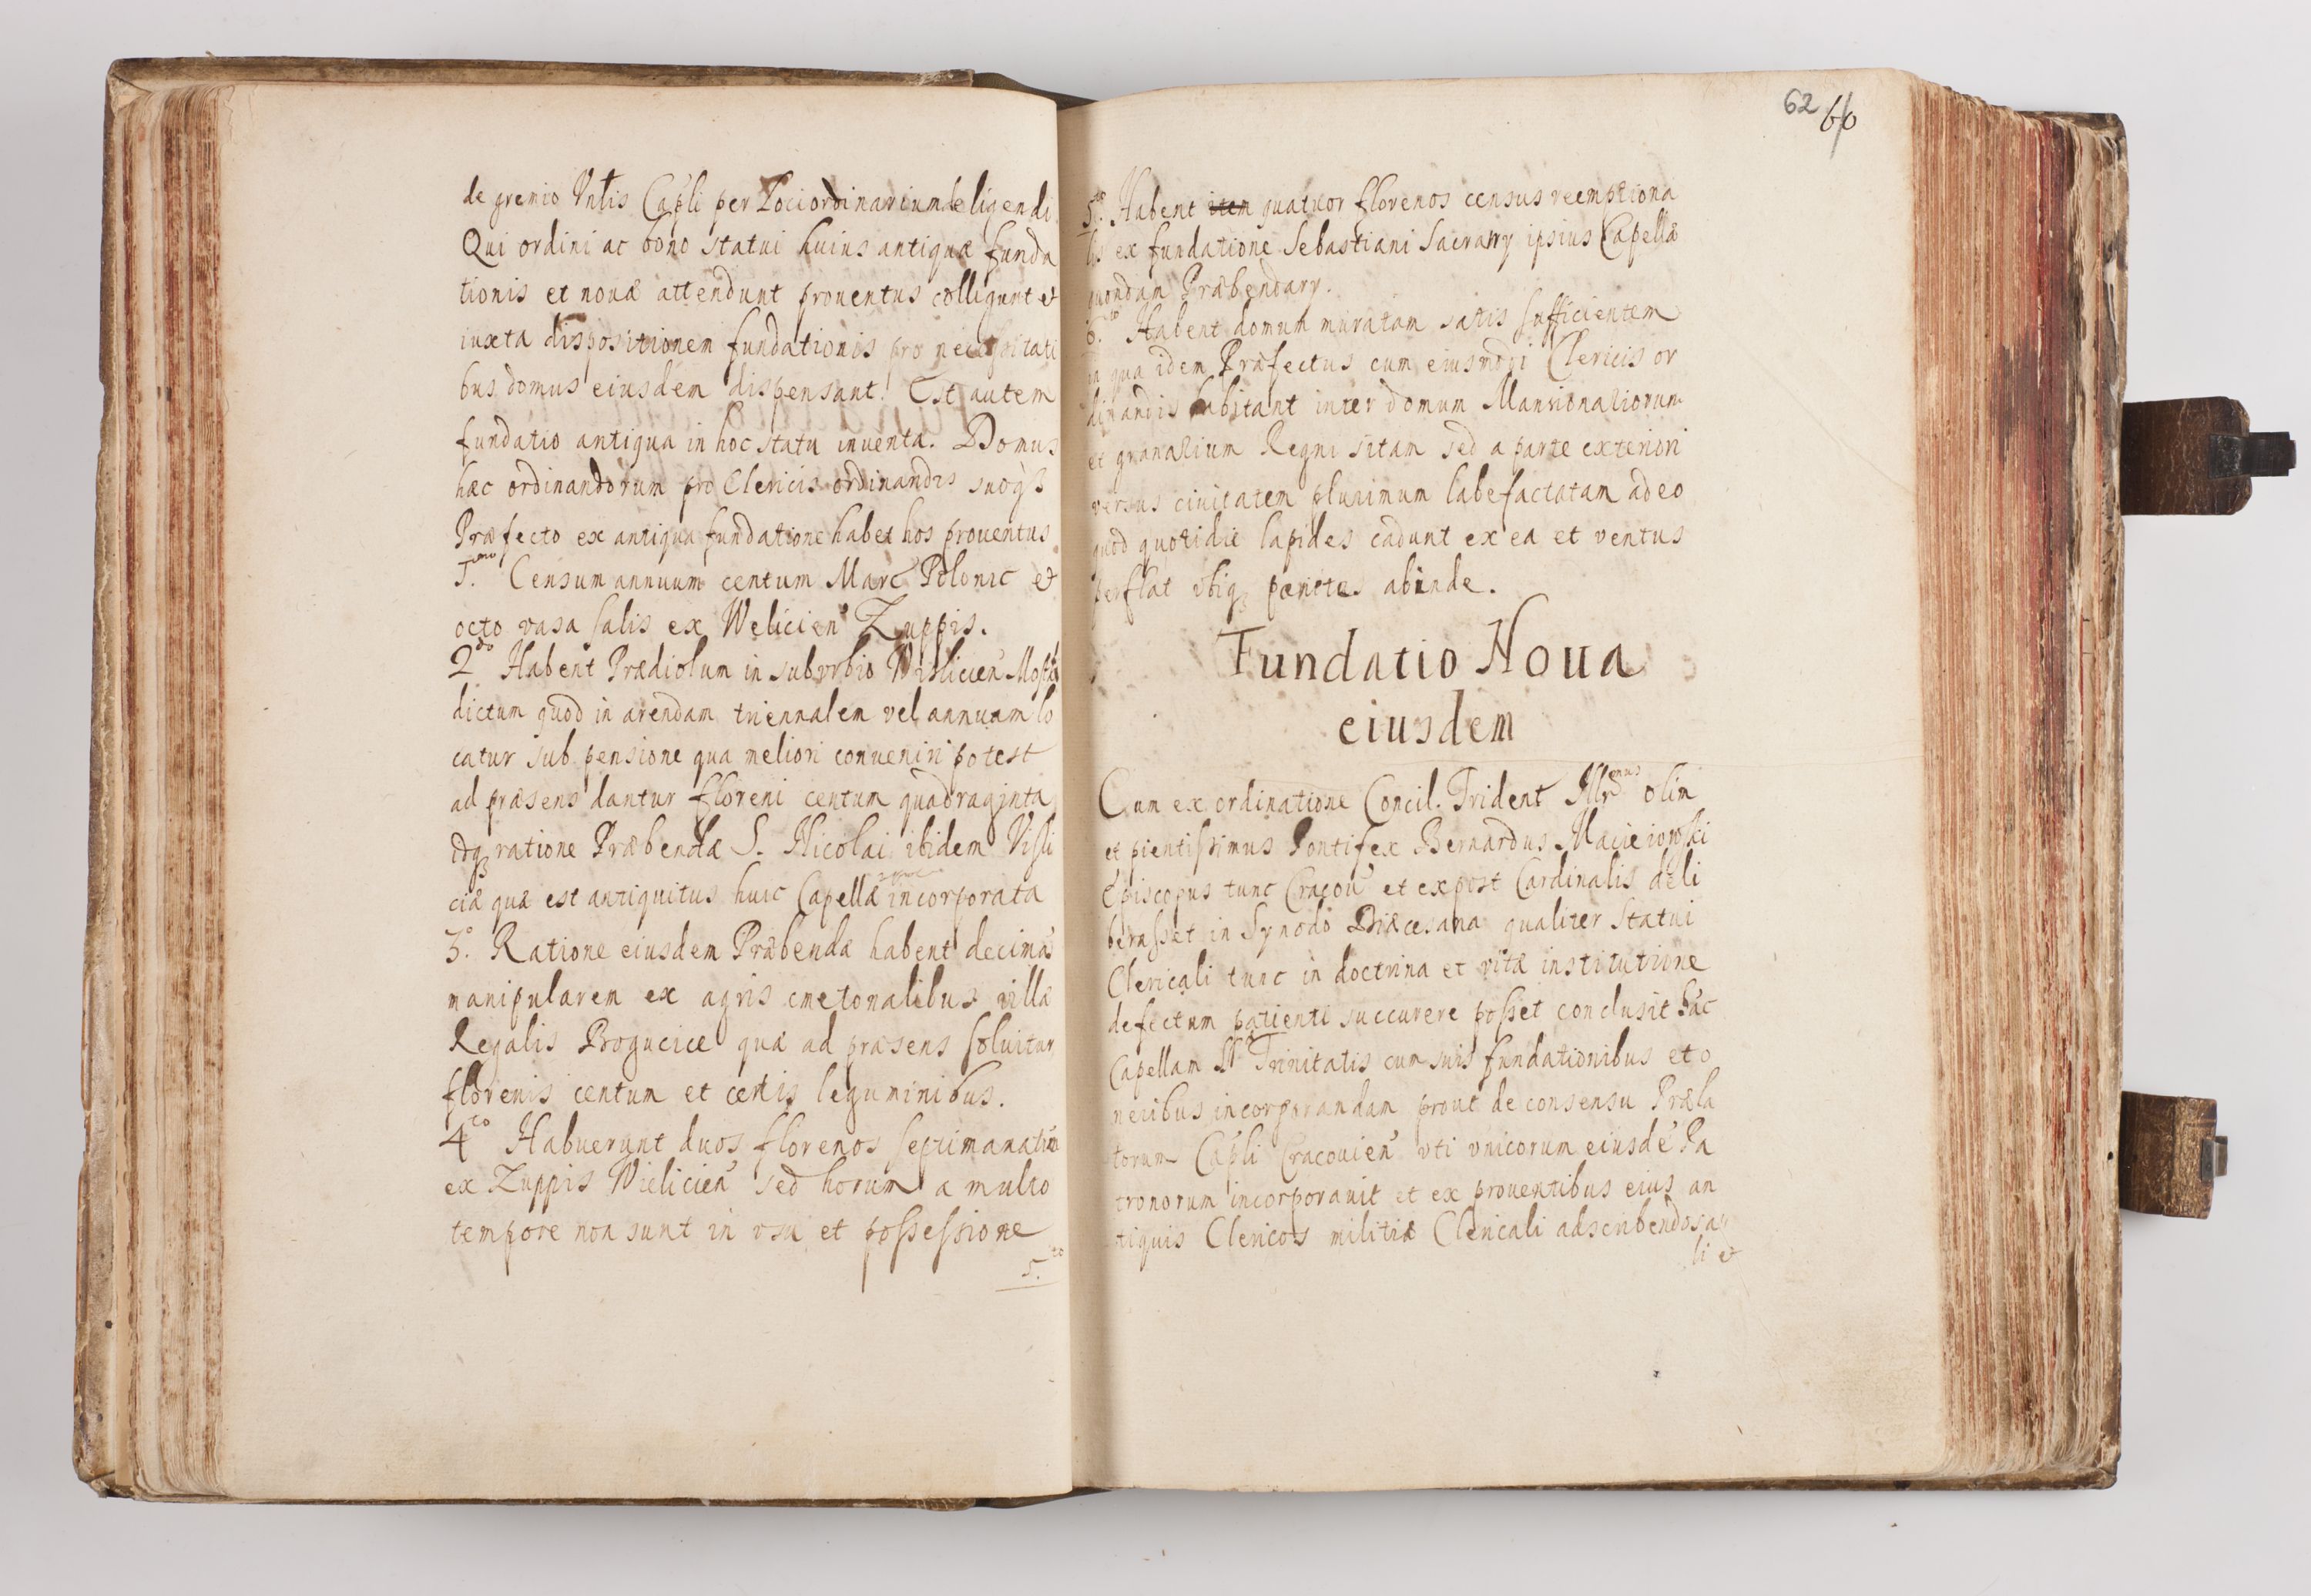 de gremio Vnlis Capli per Lociordinarium eligendi
Qui ordini ac bono statui huius antiquæ funda
tionis et nouæ attendunt prouentus colligunt et
iuxta dispositionem fundationis pro necessitati
bus domus eiusdem dispensant. Est autem
fundatio antiqua in hoc statu inuenta. Domus
hæc ordinandorum pro Clericis ordinandis suoqȝ
Præfecto ex antiqua fundatione habet hos prouentus
1.mo Censum annuum centum Marc Polonic et
octo vasa salis ex Welicien Zuppis.
2do Habent Prædiolum in suburbio Wislicien
dictum quod in arendam triennalem vel annuam lo
catur sub pensione qua meliori conueniri potest
ad præsens dantur floreni centum quadraginta
idqȝ ratione Præbendæ S. Nicolai ibidem Visli
ciæ quæ est antiquitus huic Capellæ incorporata
3.o Ratione eiusdem Præbendæ habent decima
manipularem ex agris cmetonalibus villæ
Regalis Brogucice quæ ad præsens soluitur
florenis centum et certis leguminibus.
4to Habuerunt duos florenos septimanatim
ex Zuppis Wielicien sed horum a multo
tempore non sunt in vsu et possessione
5.to
62 60
5.to Habent item quatuor florenos census reemptiona
lis ex fundatione Sebastiani Sacrany ipsius Capellæ
quondam Præbendary.
6.to Habent domum muratam satis sufficientem
in qua idem Præfectus cum eiusmodi Clericis or
dinandis habitant inter domum Mansionaliorum
et granarium Regni sitam sed a parte exteriori
versus ciuitatem plurimum labefactatam adeo
quod quotidie lapides cadunt ex ea et ventus
perflat ibiqȝ parietes abinde.
Fundatio Noua
eiusdem
Cum ex ordinatione Concil. Trident Illrmus olim
et pientissimus Pontifex Bernardus Macieiowski
Episcopus tunc Cracou et expost Cardinalis deli
berasset in Synodo Diæcesana qualiter statui
Clericali tunc in doctrina et vitæ institutione
defectum patienti succurere posset conclusit hac
Capellam SS Trinitatis cum suis fundationibus et o
neribus incorporandam prout de consensu Præla
torum Capli Cracouien vti vnicorum eiusde Pa
tronorum incorporauit et ex prouentibus eius an
tiquis Clericos militiæ Clericali adscribendos a
li et